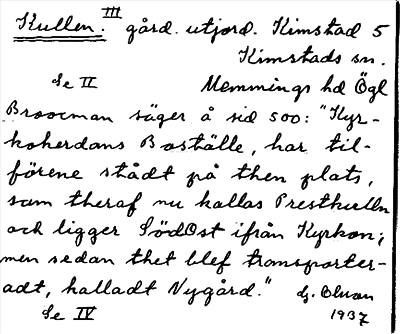 Kullen.III gård. utjord. Kimstad 5
Kimstads sn.
Se II Memmings hd Ögl
Broocman säger å sid 500: "Kyr-
koherdans Boställe, har til-
förene stådt på then plats,
som theraf nu kallas Prestkulln
och ligger SödOst ifrån Kyrkon;
men sedan thet blef transporter-
adt, halladt Nygård."
Se IV 1937